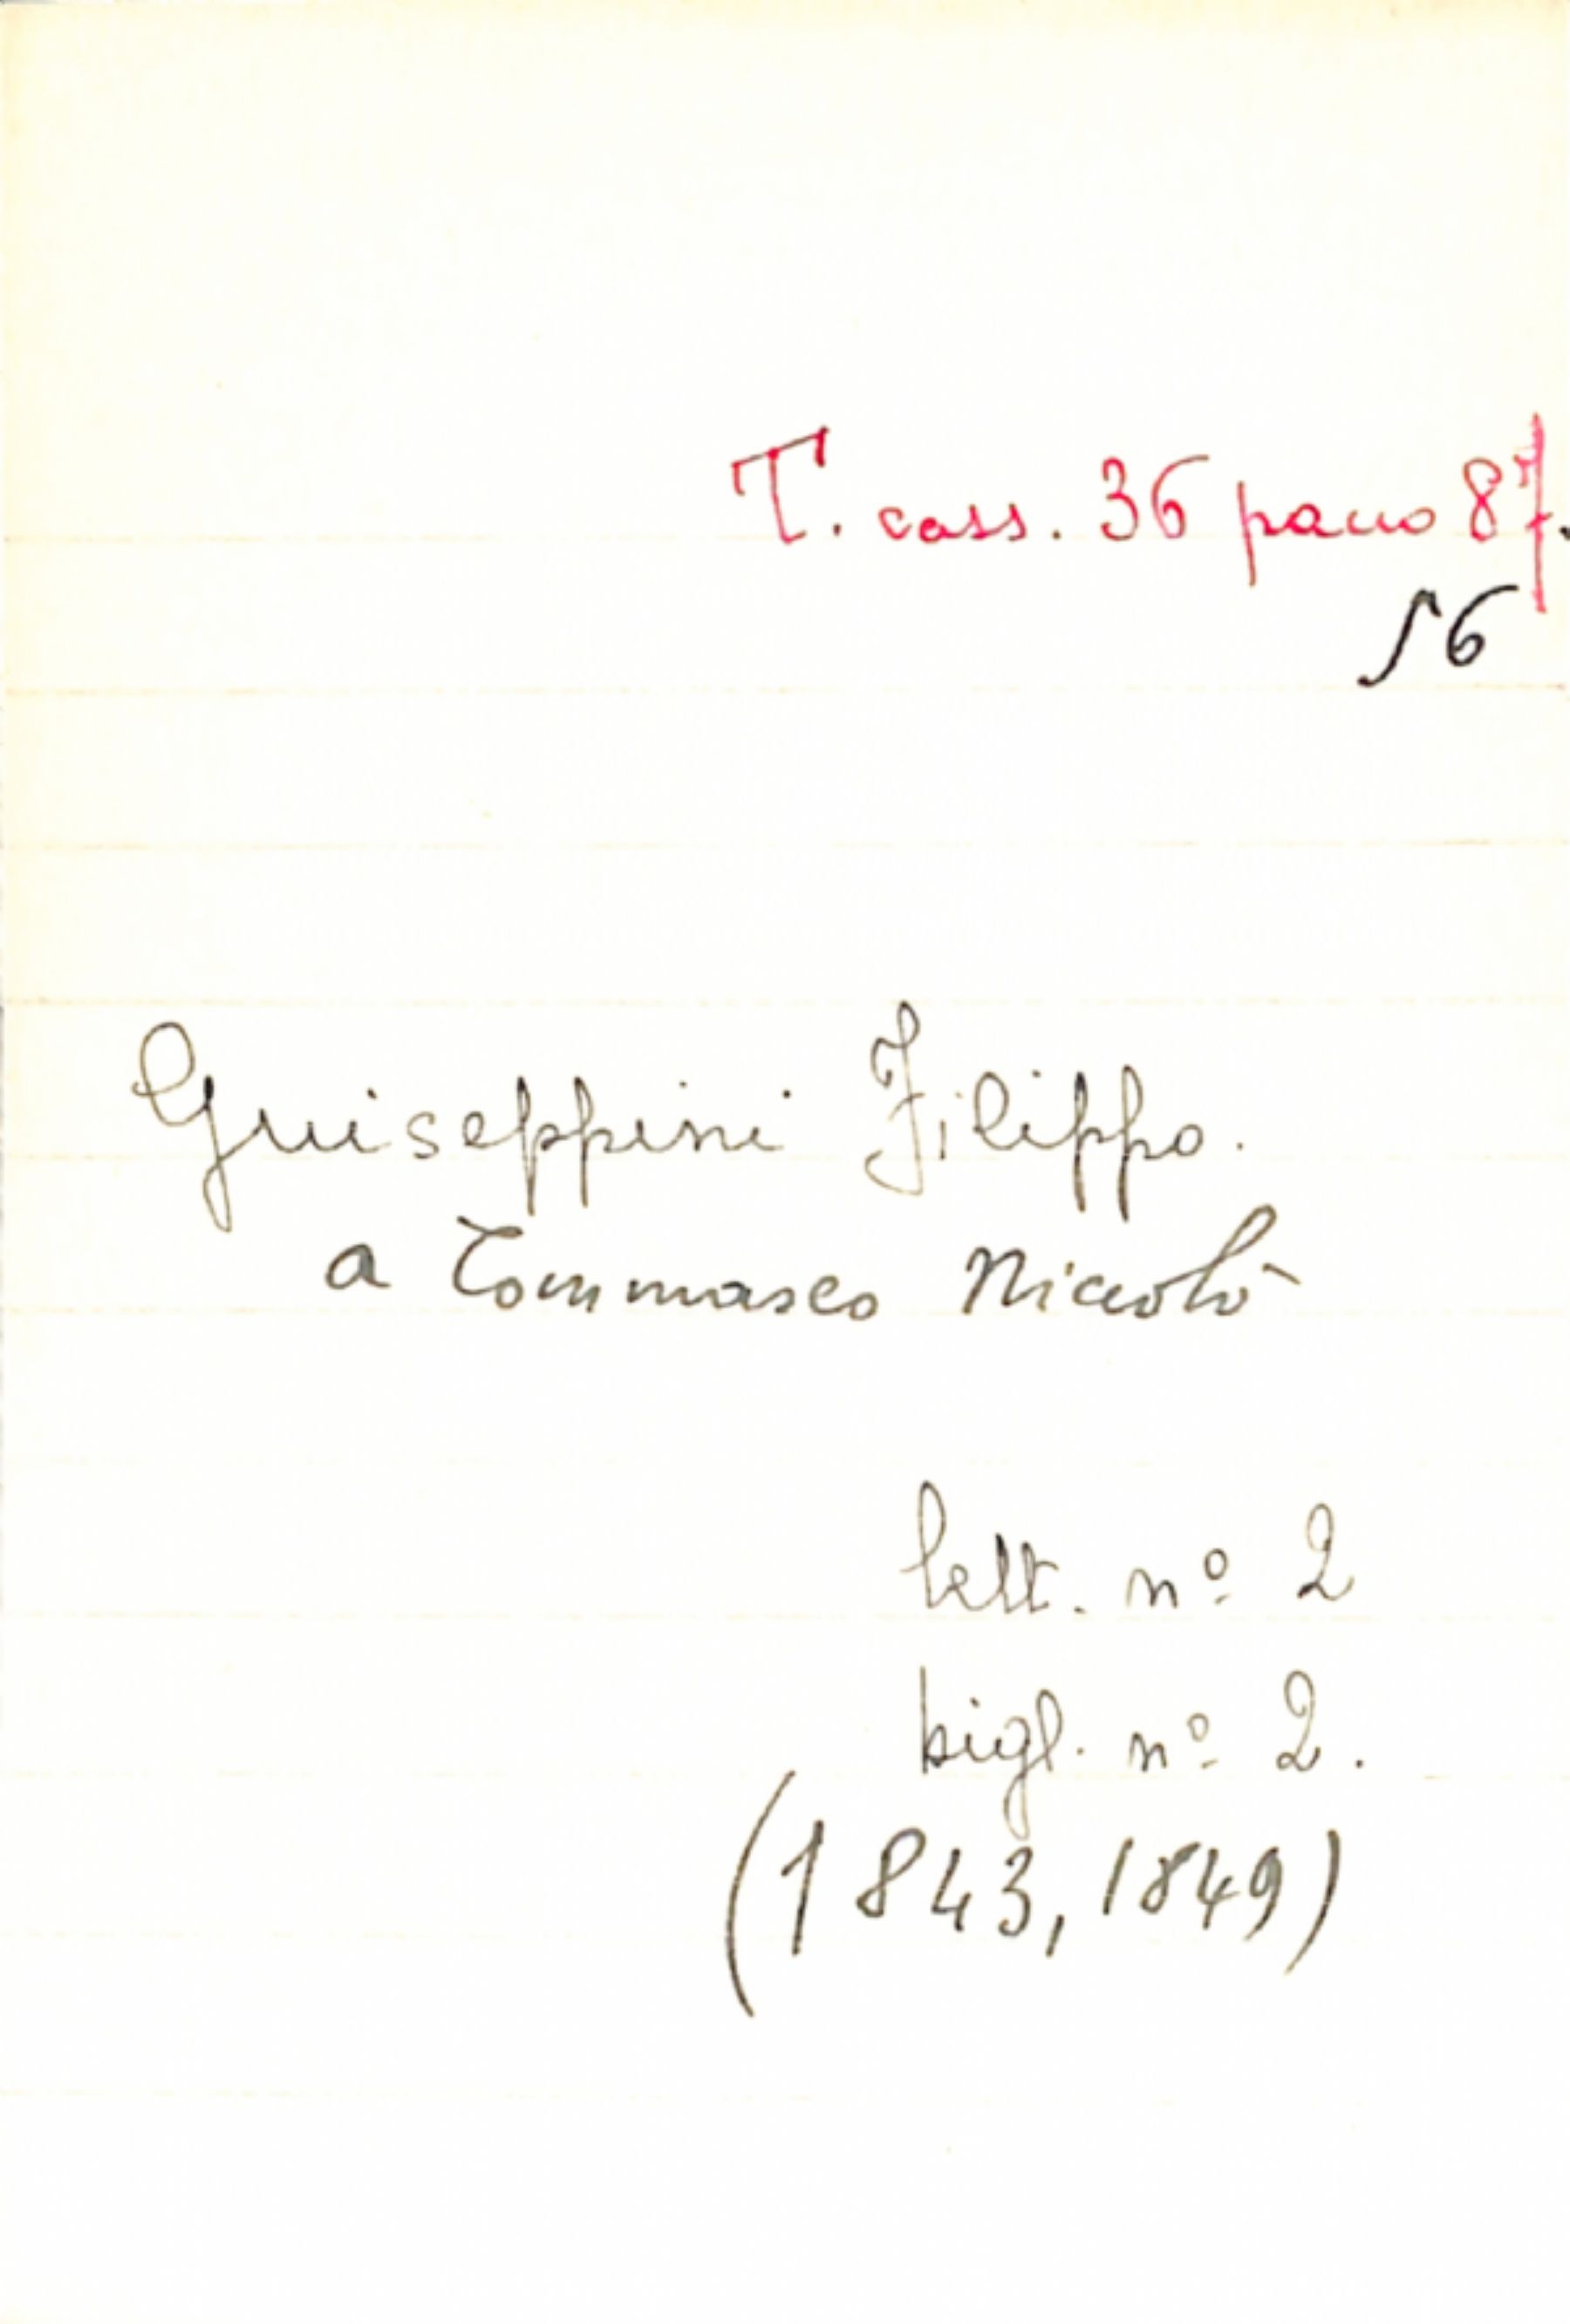 T. cass. 36 pacco 87.
56
Guiseppini Filippo.
a Tommaseo Niccolò
lett. nº 2
bigl. nº 2.
(1843, 1849)